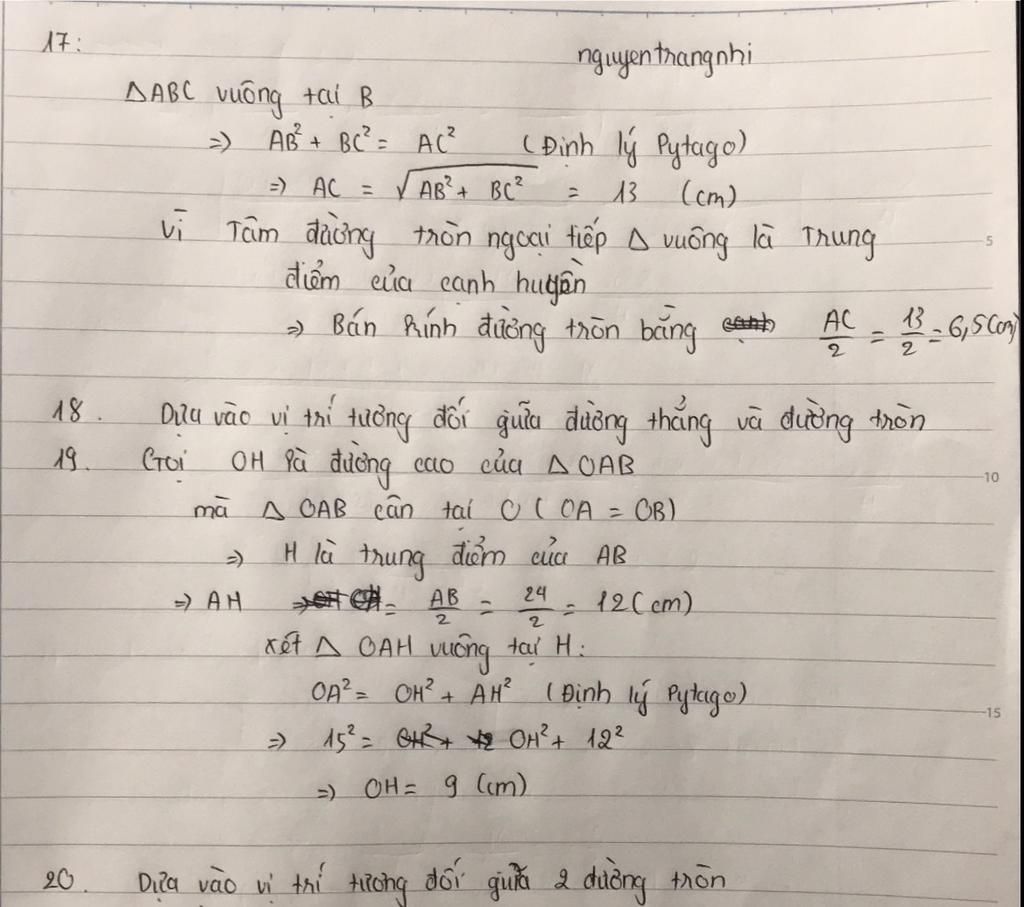 17:
nguyentrangnhi
ΔABC vuông tại B
=> AB² + BC² = AC² (Định lý Pytago)
=> AC = √(AB² + BC²) = 13 (cm)
Vì Tâm đường tròn ngoại tiếp Δ vuông là Trung
5
điểm của cạnh huyền
=> Bán kính đường tròn bằng AC/2 = 13/2 = 6,5(cm)
18. Dựa vào vị trí tương đối giữa đường thẳng và đường tròn
19. Gọi OH là đường cao của Δ OAB
10
mà Δ OAB cân tại O (OA = OB)
=> H là trung điểm của AB
=> AH = AB/2 = 24/2 = 12 (cm)
xét Δ OAH vuông tại H:
OA² = OH² + AH² (Định lý Pytago)
15
=> 15² = OH² + 12²
=> OH = 9 (cm)
20. Dựa vào vị trí tương đối giữa 2 đường tròn